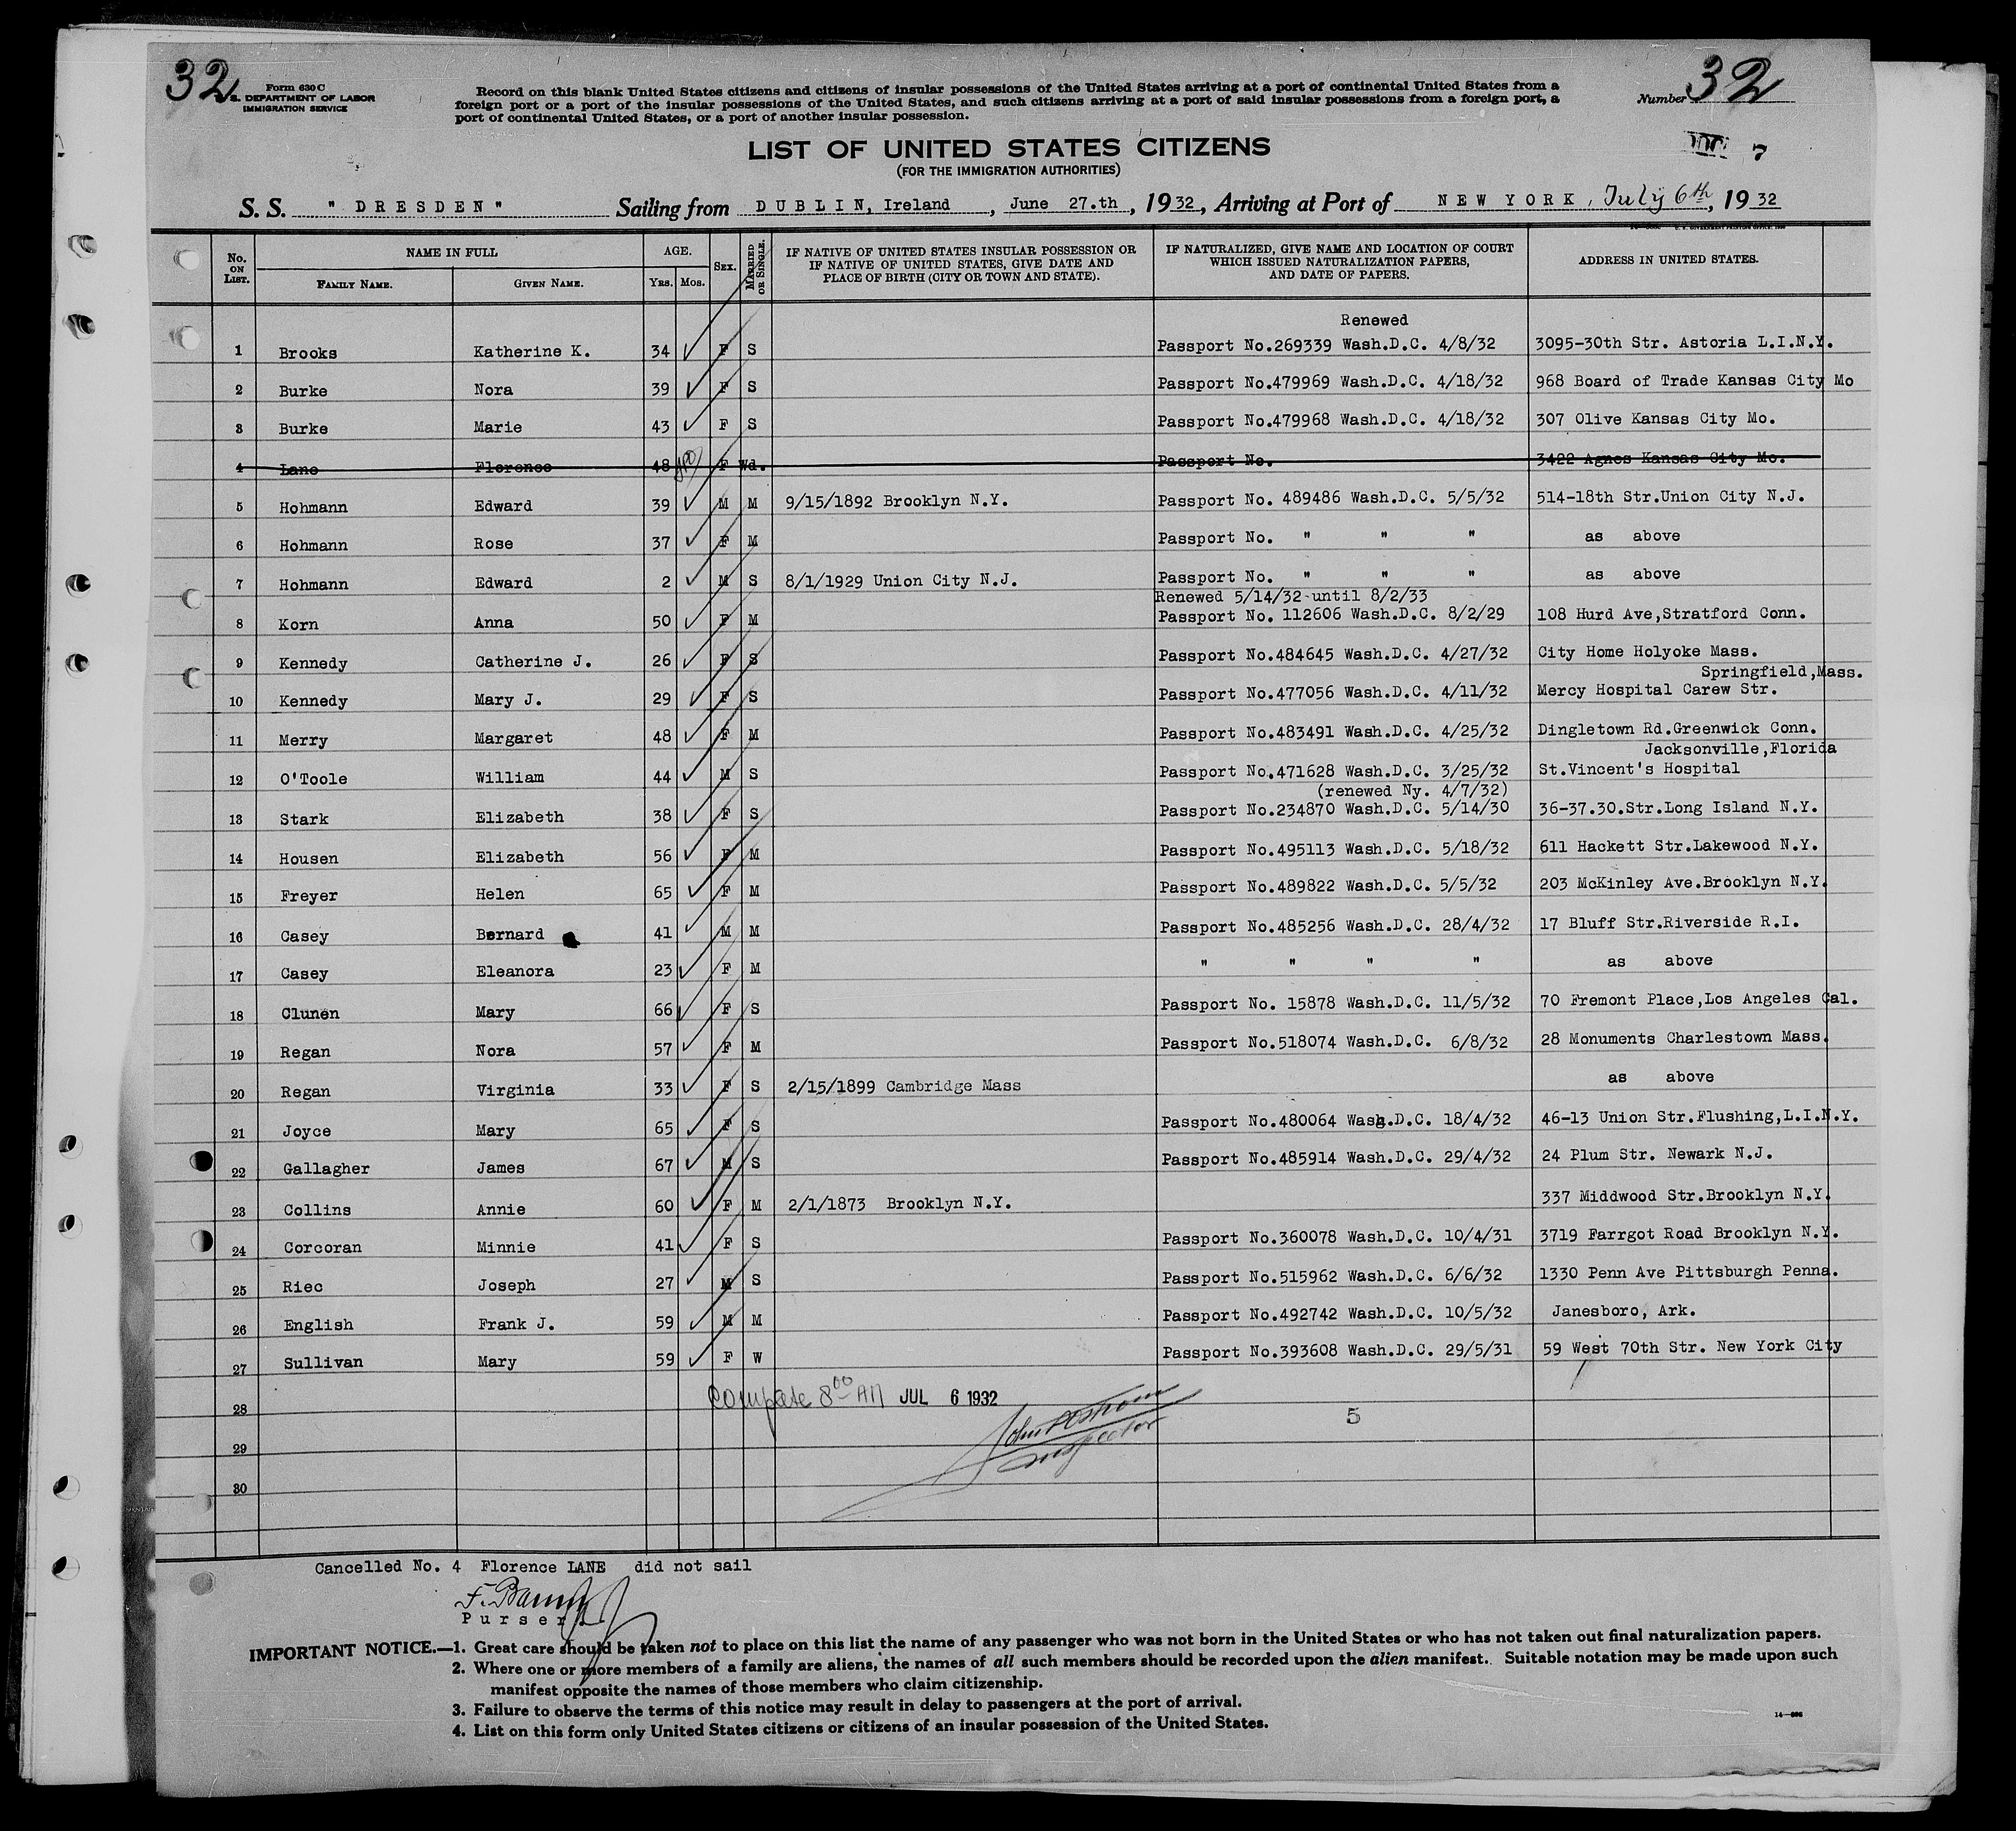 32
Form 630 C
U. S. DEPARTMENT OF LABOR
IMMIGRATION SERVICE
Record on this blank United States citizens and citizens of insular possessions of the United States arriving at a port of continental United States from a
foreign port or a port of the insular possessions of the United States, and such citizens arriving at a port of said insular possessions from a foreign port, a
port of continental United States, or a port of another insular possession.
Number 32
7
LIST OF UNITED STATES CITIZENS
(FOR THE IMMIGRATION AUTHORITIES)
S. S. "DRESDEN" Sailing from DUBLIN, Ireland, June 27.th, 1932, Arriving at Port of NEW YORK, July 6th, 1932
No. ON LIST. NAME IN FULL FAMILY NAME. GIVEN NAME. AGE. YRS. MOS. SEX. MARRIED OR SINGLE. IF NATIVE OF UNITED STATES INSULAR POSSESSION OR IF NATIVE OF UNITED STATES, GIVE DATE AND PLACE OF BIRTH (CITY OR TOWN AND STATE). IF NATURALIZED, GIVE NAME AND LOCATION OF COURT WHICH ISSUED NATURALIZATION PAPERS, AND DATE OF PAPERS. ADDRESS IN UNITED STATES.
Renewed
1 Brooks Katherine K. 34 F S Passport No.269339 Wash.D.C. 4/8/32 3095-30th Str. Astoria L.I.N.Y.
2 Burke Nora 39 F S Passport No.479969 Wash.D.C. 4/18/32 968 Board of Trade Kansas City Mo
3 Burke Marie 43 F S Passport No.479968 Wash.D.C. 4/18/32 307 Olive Kansas City Mo.
4 Lane Florence 48 F Wd. Passport No. 3422 Agnes Kansas City Mo.
5 Hohmann Edward 39 M M 9/15/1892 Brooklyn N.Y. Passport No. 489486 Wash.D.C. 5/5/32 514-18th Str.Union City N.J.
6 Hohmann Rose 37 F M Passport No. " " " as above
7 Hohmann Edward 2 M S 8/1/1929 Union City N.J. Passport No. " " " as above
Renewed 5/14/32 until 8/2/33
8 Korn Anna 50 F M Passport No. 112606 Wash.D.C. 8/2/29 108 Hurd Ave,Stratford Conn.
9 Kennedy Catherine J. 26 F S Passport No.484645 Wash.D.C. 4/27/32 City Home Holyoke Mass.
Springfield,Mass.
10 Kennedy Mary J. 29 F S Passport No.477056 Wash.D.C. 4/11/32 Mercy Hospital Carew Str.
11 Merry Margaret 48 F M Passport No.483491 Wash.D.C. 4/25/32 Dingletown Rd.Greenwick Conn.
Jacksonville,Florida
12 O'Toole William 44 M S Passport No.471628 Wash.D.C. 3/25/32 St.Vincent's Hospital
(renewed Ny. 4/7/32)
13 Stark Elizabeth 38 F S Passport No.234870 Wash.D.C. 5/14/30 36-37.30.Str.Long Island N.Y.
14 Housen Elizabeth 56 F M Passport No.495113 Wash.D.C. 5/18/32 611 Hackett Str.Lakewood N.Y.
15 Freyer Helen 65 F M Passport No.489822 Wash.D.C. 5/5/32 203 McKinley Ave.Brooklyn N.Y.
16 Casey Bernard 41 M M Passport No.485256 Wash.D.C. 28/4/32 17 Bluff Str.Riverside R.I.
17 Casey Eleanora 23 F M " " " " as above
18 Clunen Mary 66 F S Passport No. 15878 Wash.D.C. 11/5/32 70 Fremont Place,Los Angeles Cal.
19 Regan Nora 57 F M Passport No.518074 Wash.D.C. 6/8/32 28 Monuments Charlestown Mass.
20 Regan Virginia 33 F S 2/15/1899 Cambridge Mass as above
21 Joyce Mary 65 F S Passport No.480064 Wash.D.C. 18/4/32 46-13 Union Str.Flushing,L.I.N.Y.
22 Gallagher James 67 M S Passport No.485914 Wash.D.C. 29/4/32 24 Plum Str. Newark N.J.
23 Collins Annie 60 F M 2/1/1873 Brooklyn N.Y. 337 Middwood Str.Brooklyn N.Y.
24 Corcoran Minnie 41 F S Passport No.360078 Wash.D.C. 10/4/31 3719 Farrgot Road Brooklyn N.Y.
25 Riec Joseph 27 M S Passport No.515962 Wash.D.C. 6/6/32 1330 Penn Ave Pittsburgh Penna.
26 English Frank J. 59 M M Passport No.492742 Wash.D.C. 10/5/32 Janesboro, Ark.
27 Sullivan Mary 59 F W Passport No.393608 Wash.D.C. 29/5/31 59 West 70th Str. New York City
Complete 8 00 AM JUL 6 1932
28
5
Inspector
29
30
Cancelled No. 4 Florence LANE did not sail
Purser
IMPORTANT NOTICE.—1. Great care should be taken not to place on this list the name of any passenger who was not born in the United States or who has not taken out final naturalization papers.
2. Where one or more members of a family are aliens, the names of all such members should be recorded upon the alien manifest. Suitable notation may be made upon such
manifest opposite the names of those members who claim citizenship.
3. Failure to observe the terms of this notice may result in delay to passengers at the port of arrival.
4. List on this form only United States citizens or citizens of an insular possession of the United States.